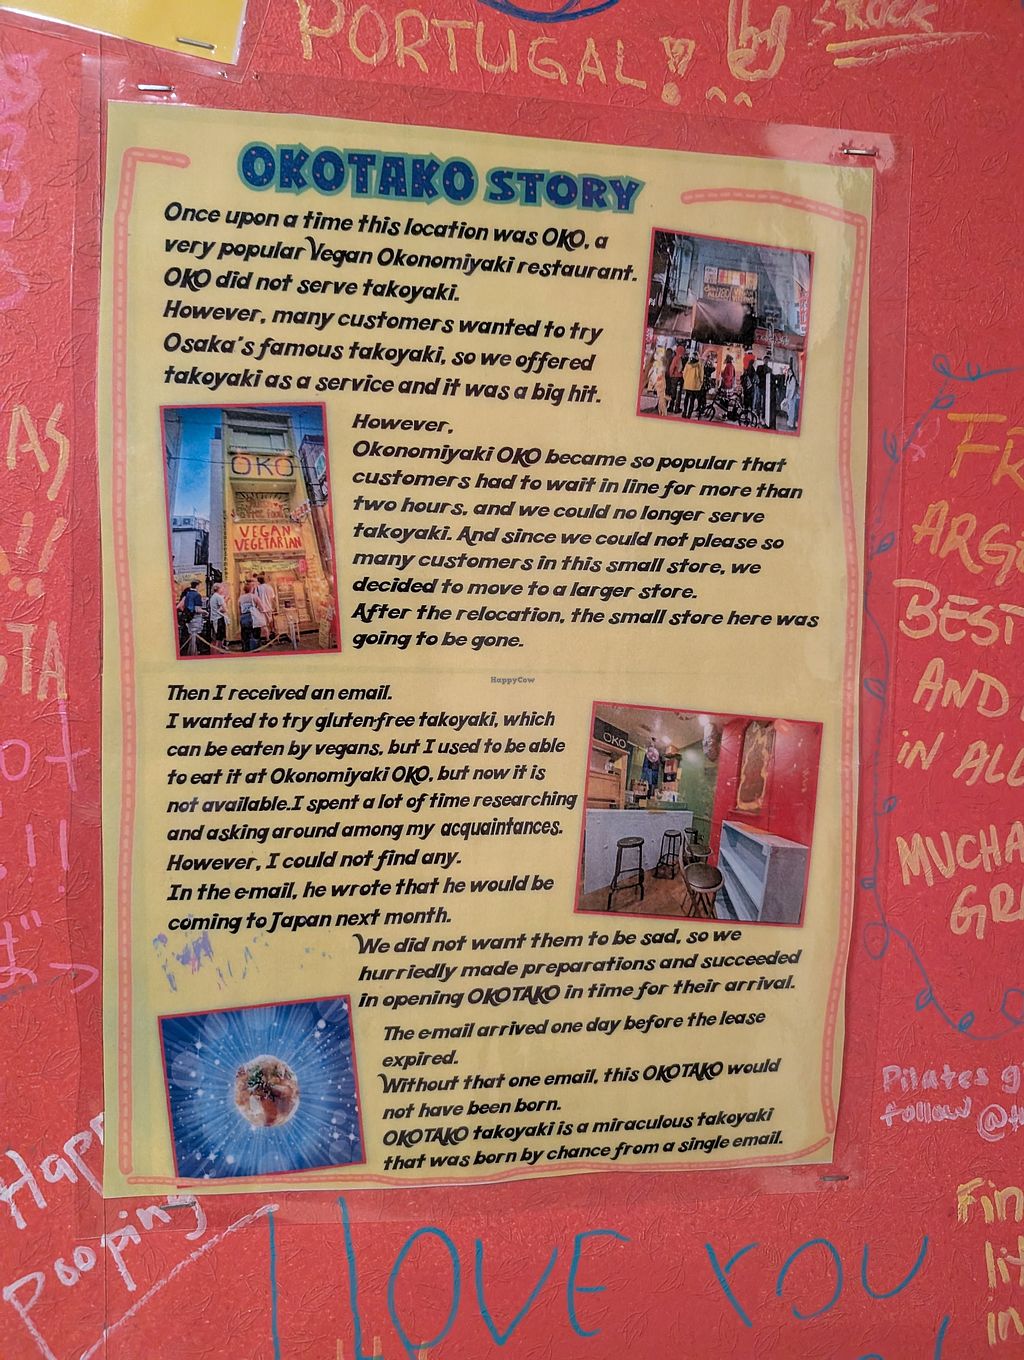 PORTUGAL!
ROCK
OKOTAKO STORY
Once upon a time this location was OKO, a
very popular Vegan Okonomiyaki restaurant.
OKO did not serve takoyaki.
However, many customers wanted to try
Osaka's famous takoyaki, so we offered
takoyaki as a service and it was a big hit.
OKO
VEGAN
VEGETARIAN
However,
Okonomiyaki OKO became so popular that
customers had to wait in line for more than
two hours, and we could no longer serve
takoyaki. And since we could not please so
many customers in this small store, we
decided to move to a larger store.
After the relocation, the small store here was
going to be gone.
HappyCow
Then I received an email.
I wanted to try gluten-free takoyaki, which
can be eaten by vegans, but I used to be able
to eat it at Okonomiyaki OKO, but now it is
not available.I spent a lot of time researching
and asking around among my acquaintances.
However, I could not find any.
In the e-mail, he wrote that he would be
coming to Japan next month.
OKO
We did not want them to be sad, so we
hurriedly made preparations and succeeded
in opening OKOTAKO in time for their arrival.
The e-mail arrived one day before the lease
expired.
Without that one email, this OKOTAKO would
not have been born.
OKOTAKO takoyaki is a miraculous takoyaki
that was born by chance from a single email.
BEST
AND
iN ALL
MUCHA
GR
Pilates
follow @
Pooping
I LOVE YOU